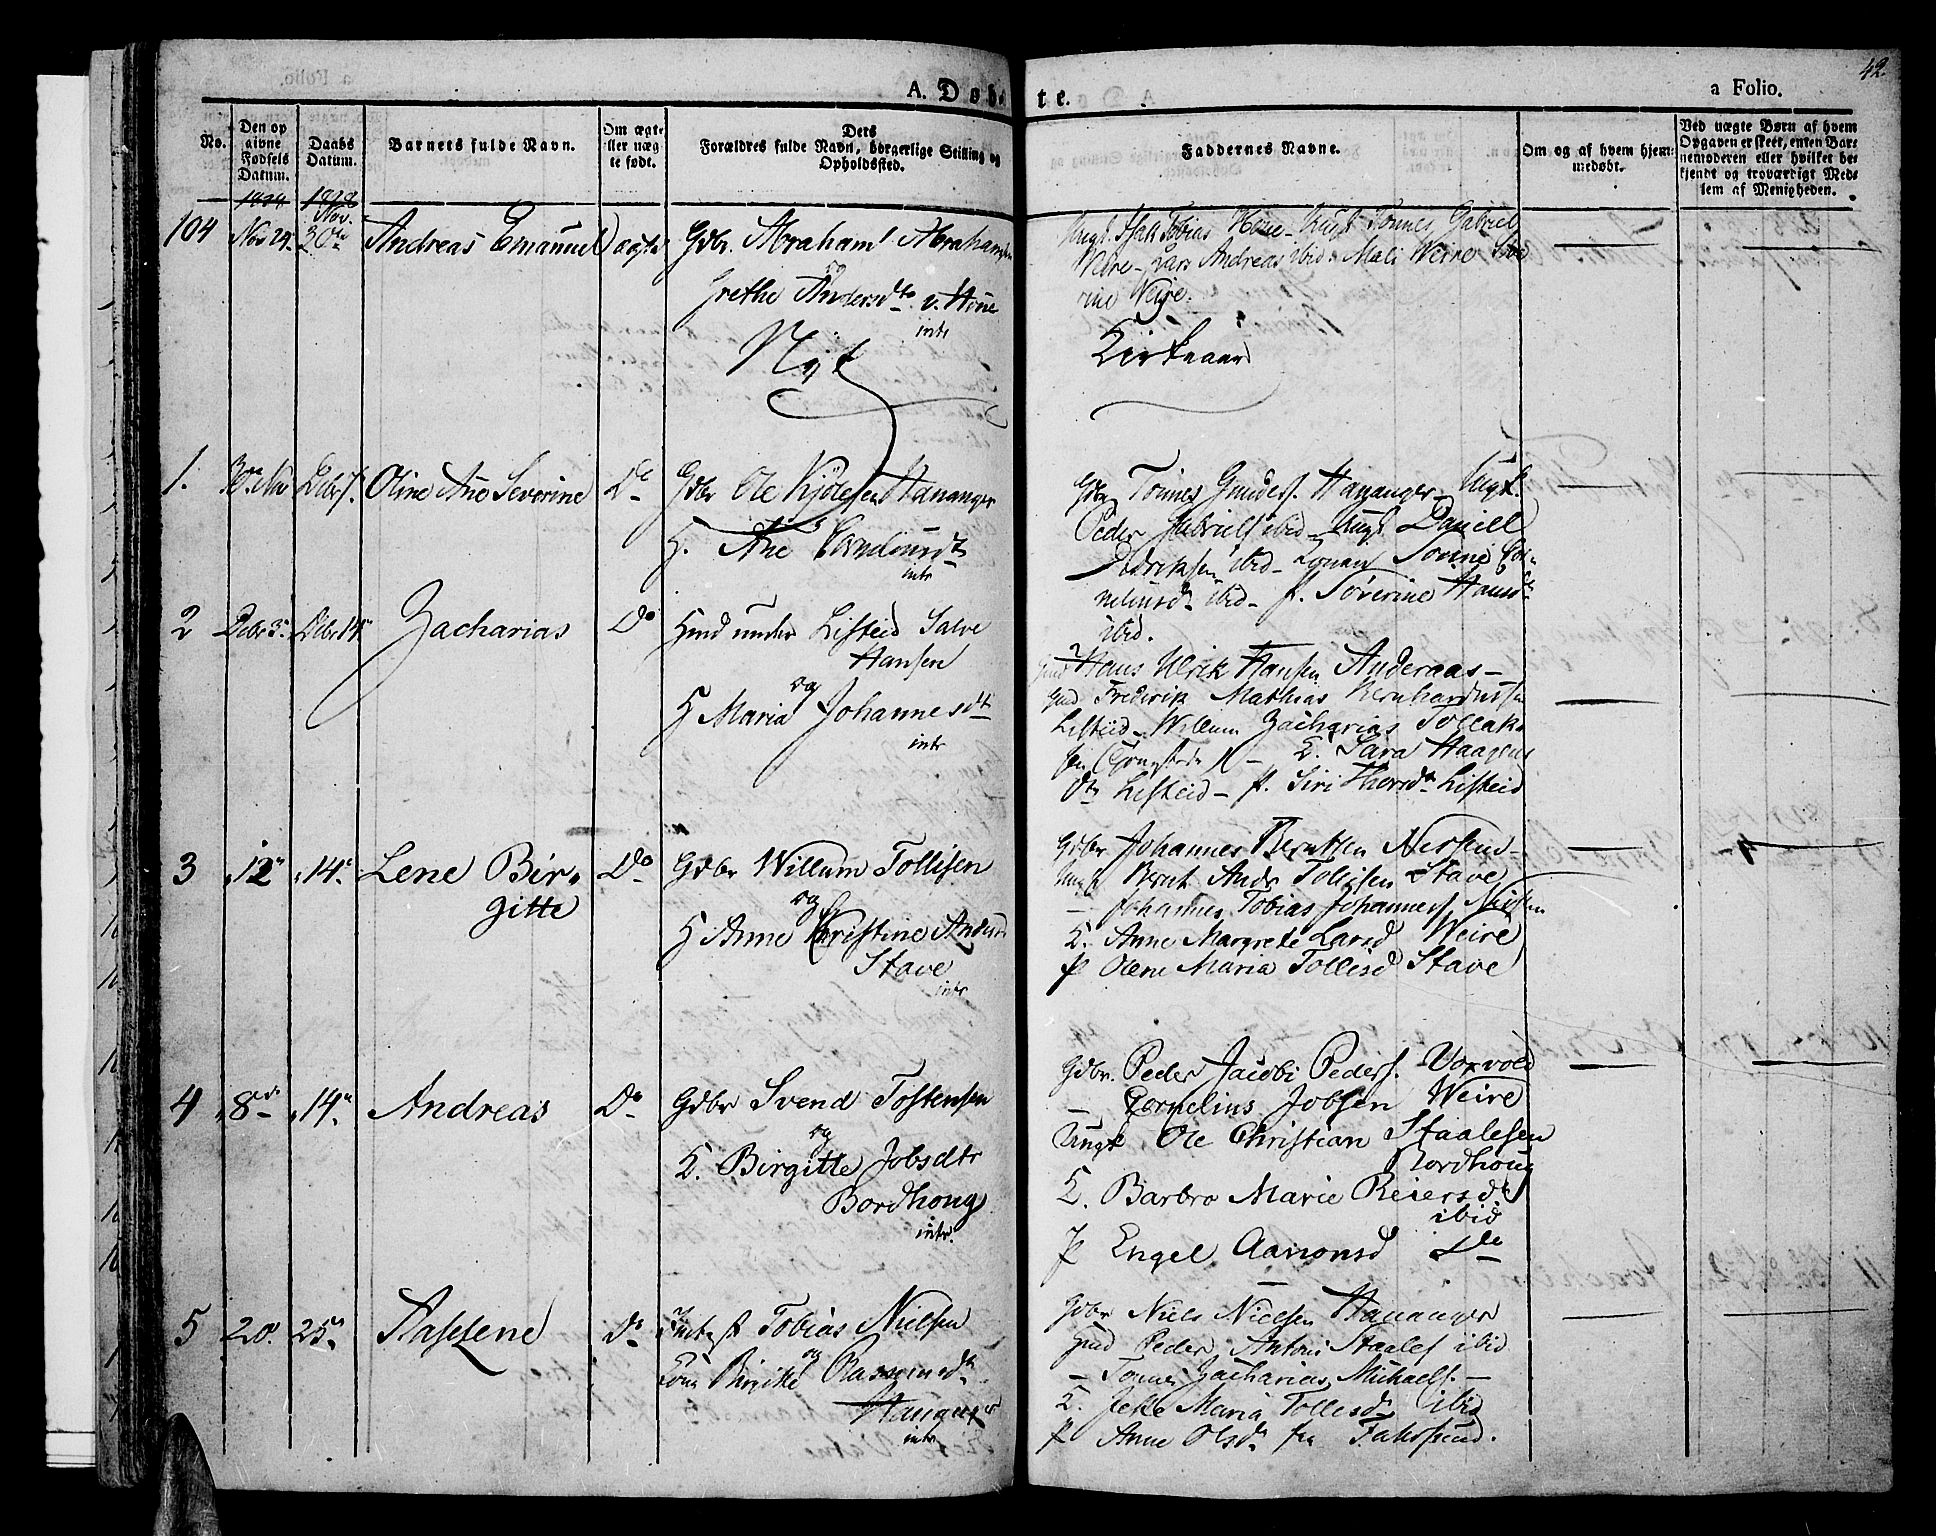 42.
A. Døb-
te.
a Folio.
No.
Den op
givne
Fødsels
Datum.
Daabs
Datum.
Barnets fulde Navn.
Om ægte
eller uæg
te født.
Dets
Forældres fulde Navn, borgerlige Stilling og
Opholdssted.
Faddernes Navne.
Om og af hvem hjem-
medøbt.
Ved uægte Børn af hvem
Opgaven er skeet, enten Bar-
nemoderen eller hvilket be-
kjendt og troværdigt Med-
lem af Menigheden.
1828
1828
Nov.
104 Nov 24. 30te Andreas Emanuel ægte Gdbr. Abraham Abrahamsen
og
Grethe Andersdtr v. Haue
intr
Ungk. Isak Tobias Haue - Ungk Tønnes Gabriel
Weire - Lars Andreas ibid. Mali Weire Seve
rine Weire.
Nyt
Kirkeaar
1. Decbr 7. Oline Ane Severine Do Gdbr Ole Kjølesen Hananger
H. Ane Corneliusdtr
intr
Gdbr Tønnes Gundersf. Hananger - Ungk.
Peder Gabrielsf ibid - Ungk Daniell
Didriksen ibid - Konen Tonne Cor-
neliusdr ibid - p. Søverine Hansdtr
ibid.
2 Decbr 3. Decbr 14 Zacharias Do Hmd under Listeid Salve
Hansen
og
H Maria Johannesdtr
intr
Hans Ulrik Hansen Anderaas -
Gmd Frederik Mathias Bernhardussen
Listeid - Willum Zacharias Tollak-
sen - K. Sara Haagens
Dtr Listeid - p. Siri Thorsdtr Listeid
3 12 14 Lene Bir-
gitte
Do Gdbr Willum Tollisen
og
H Anne Christine Andersd
Stave
intr
Gdbr Johannes Berntsen Nersen -
Ungk Bernt Andr Tollisen Stave
- Johannes Tobias Johannesf. Nersen
K. Anne Margrete Larsd Weire
p Olene Maria Tollisd Stave
4 8de 14 Andreas Do Gdbr Svend Tostensen
og
K. Birgitte Jobsdtr
Bordhoug
intr.
Gdbr. Peder Jacobi Pedersf. Vorvold
- Cornelius Jobsen Weire
Ungk Ole Christian Staalesen
Bordhoug
K. Barbro Marie Reiersdtr
ibid
p Engel Aanonsd do
5 20. 25 Stassene Do Tobias Nielsen
og
Kone Birgitte Rasmusdtr
Hananger
intr
Gdbr Niels Nielsen Hananger
Gmd Peder Antoni Staalesf ibid
- Tønnes Zacharias Michaelsf. -
K. Jelle Maria Tollisdr ibid
p Anne Olsdr fra Fahrsund.